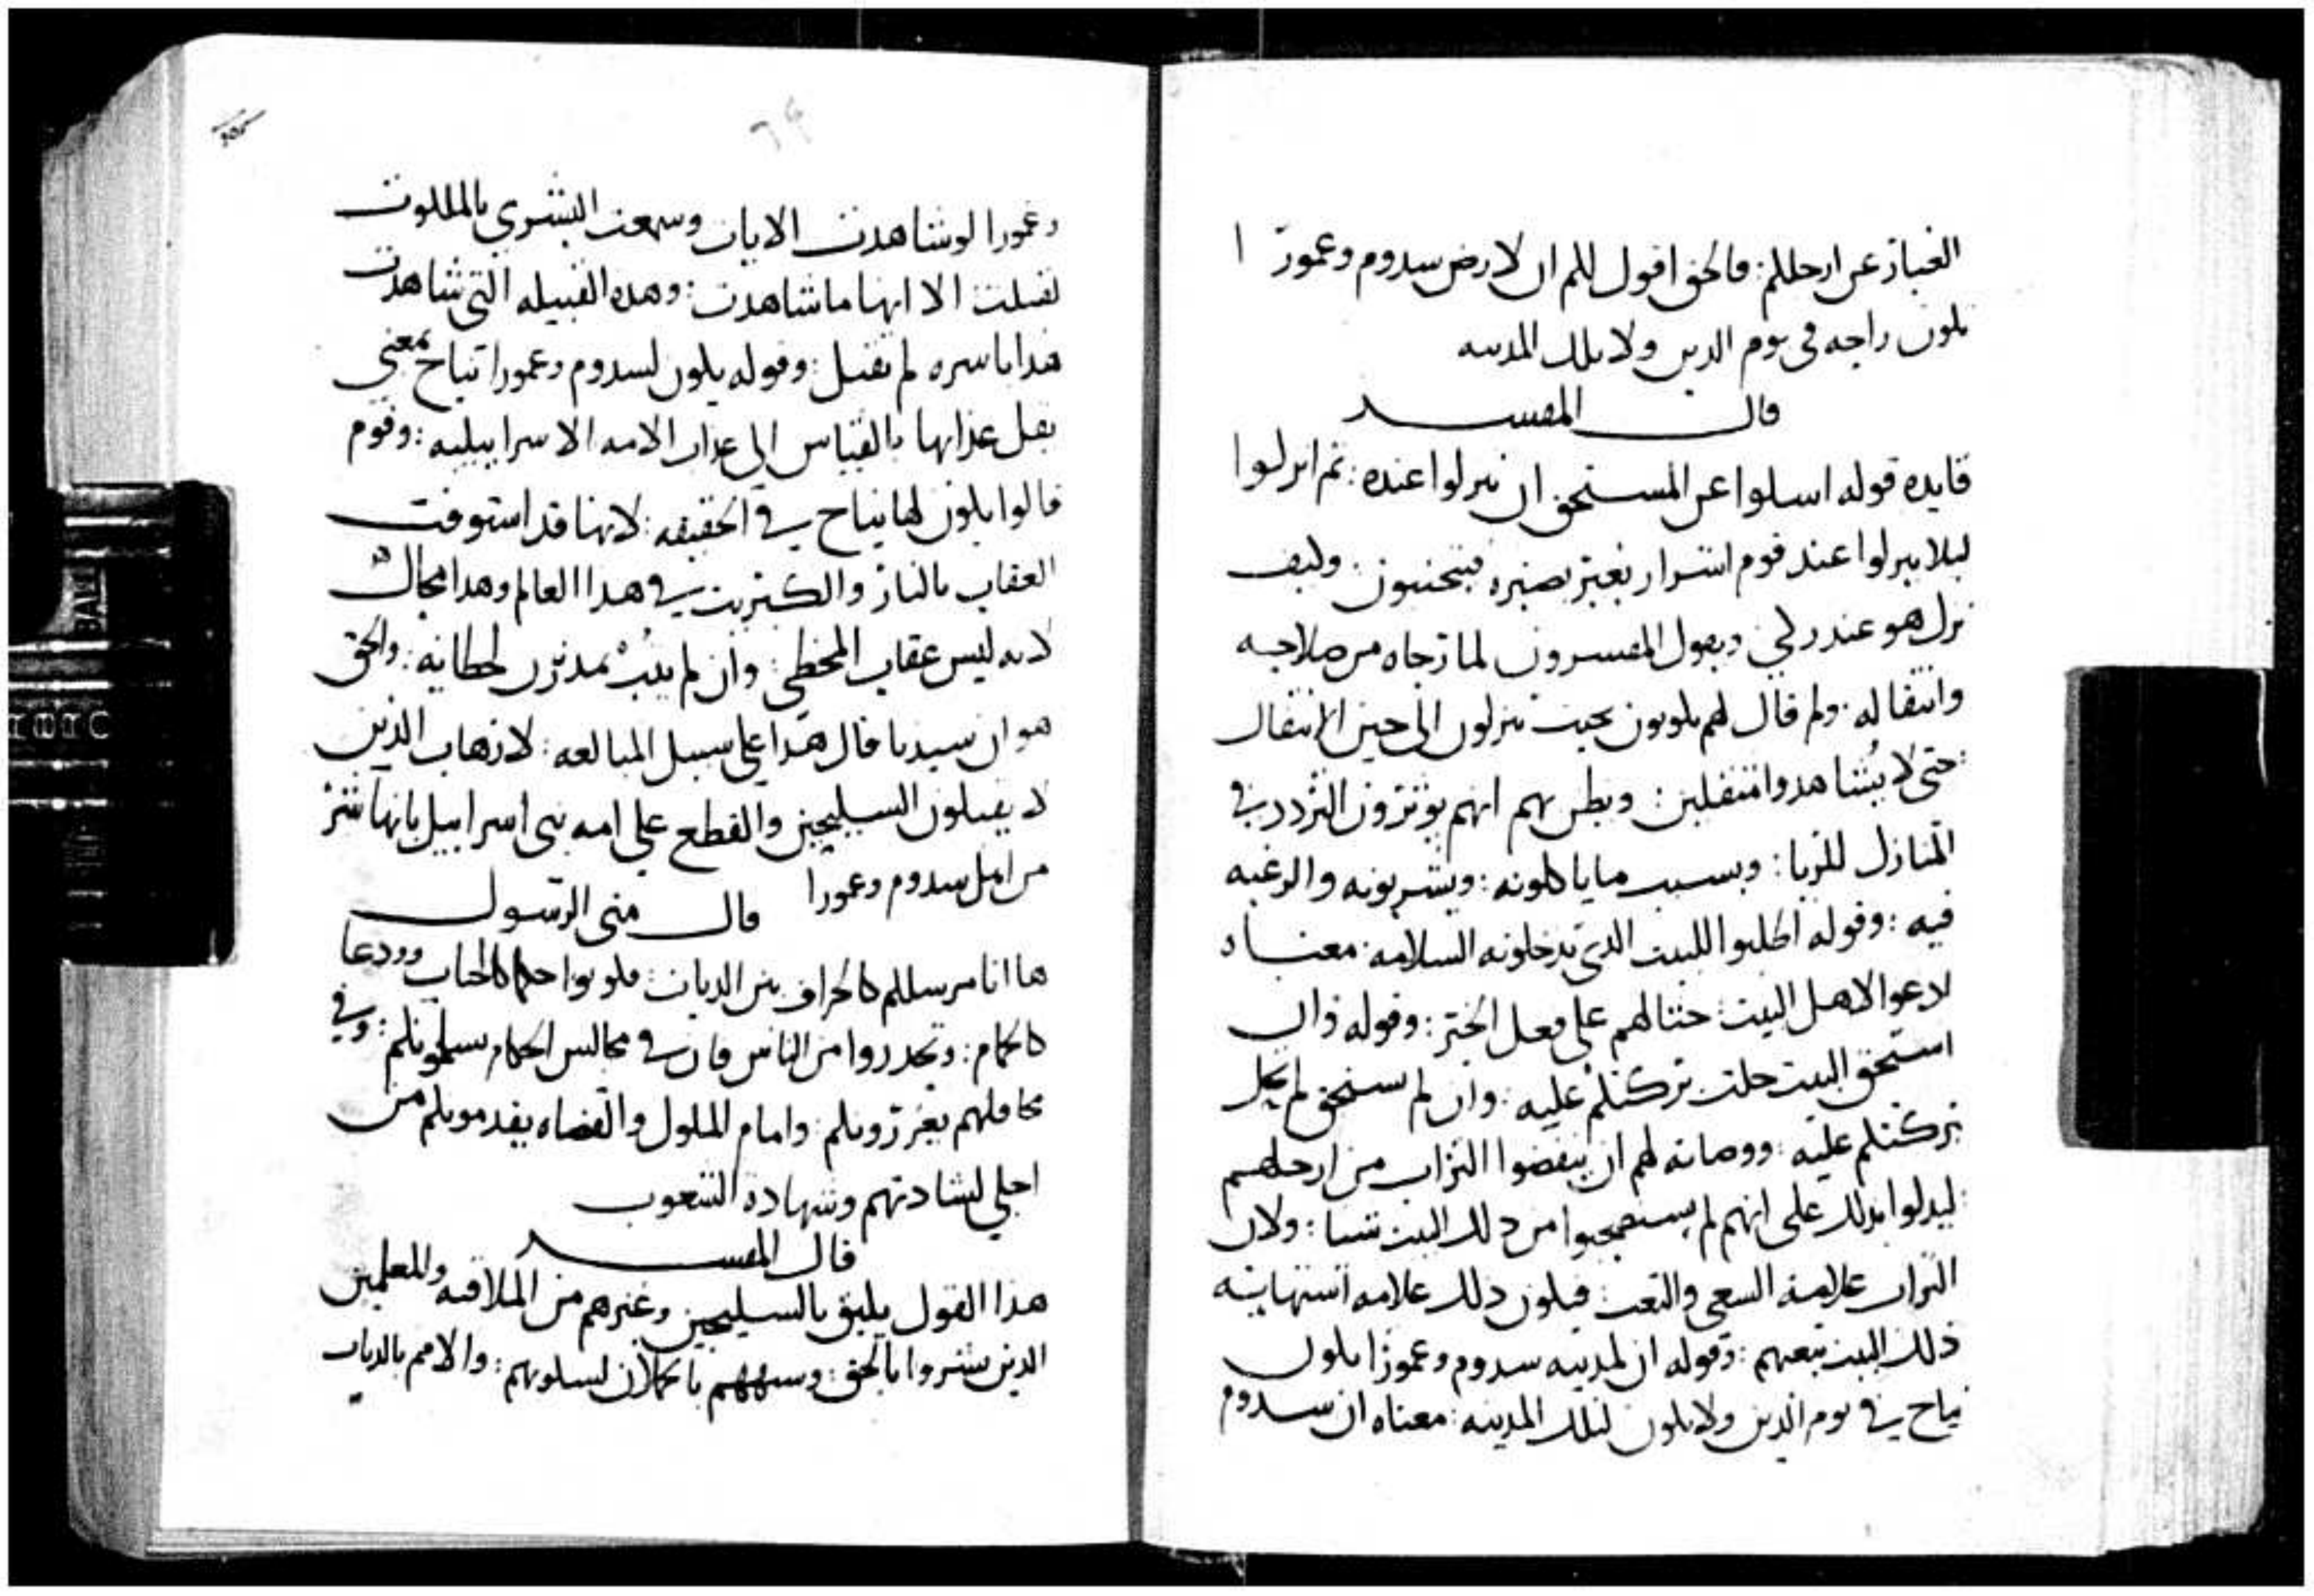 الغبار عن ارجلكم: فالحق اقول لكم ان لارض سدوم وعمورا
تكون راحه في يوم الدين ولا تلك المدينه
قال المفسر
فايده قوله اسلوا عن المستحق ان تنزلوا عنده: ثم انزلوا
ليلا ينزلوا عند قوم اشرار بغير بصيره فيتحننون. وكيف
نزل هو عند زكي ويقول المفسرون لما رجاه من صلاحه
وانتقاله. ولم قال لهم يكونون بحيث ينزلون الى حين الانتقال
حتى لا يشاهدوا متنقلين: ويظن بهم انهم يوثرون التردد في
المنازل للزيا: وبسبب ما ياكلونه: ويشربونه والرغبه
فيه: وقوله اطلبوا للبيت الذي تدخلونه السلامه: معناه
ادعوا لاهل البيت: حثا لهم على فعل الخير: وقوله وان
استحق البيت حلت بركتكم عليه: وان لم يستحق لم تحل
بركتكم عليه: ووصاته لهم ان ينفضوا التراب من ارجلهم
ليدلوا بذلك على انهم لم يستصحبوا من ذلك البيت شيا: ولان
التراب علامة السعي والتعب: فيكون ذلك علامه
ذلك البيت بتعبهم: وقوله ان لمدينه سدوم وعمورا يكون
نياح في يوم الدين ولا يكون لتلك المدينه: معناه ان سدوم
٦٩
وعمورا لو شاهدت الايات وسمعت البشري بالملكوت
لقبلت الا انها ما شاهدت: وهده القبيله التي شاهدت
هدا باسره لم تقبل: وقوله يكون لسدوم وعمورا نياح بمعني
يقل عذابها بالقياس الي عذاب الامه الاسراييليه: وقوم
قالوا يكون لها نياح في الحقيقه: لانها قد استوفت
العقاب بالنار والكبريت في هدا العالم وهدا محال
لانه ليس عقاب المخطي: وان لم يتب
هو ان سيدنا قال هدا علي سبيل المبالغه: لارهاب الذين
لا يقبلون السليحين والقطع علي امه بني اسراييل بانها شر
من اهل سدوم وعمورا قال متى الرسول
ها انا مرسلكم كالخراف بين الدياب: فكونوا حكما كالحيات وودعا
كالحمام: وتحدروا من الناس فان في مجالس الحكام يسلمونكم: وفي
محافلهم يعزرونكم: وامام الملوك والقضاه يقدمونكم من
اجلي لشهادتهم وشهادة الشعوب
قال المفسر
هذا القول يليق بالسليحين وغيرهم من الملافنه والمعلمين
الدين بشروا بالحق: وشبههم بالحملان لسكونهم: والامم بالدياب